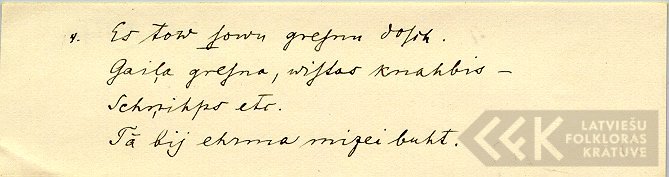 4. Es tow sowu greſnu doſch.
Gaiļa greſna, wiſtas knahbis –
Schņihps etc.
Tā bij ehrma miņei buht.
LATVIEŠU
FOLKLORAS
KRĀTUVE